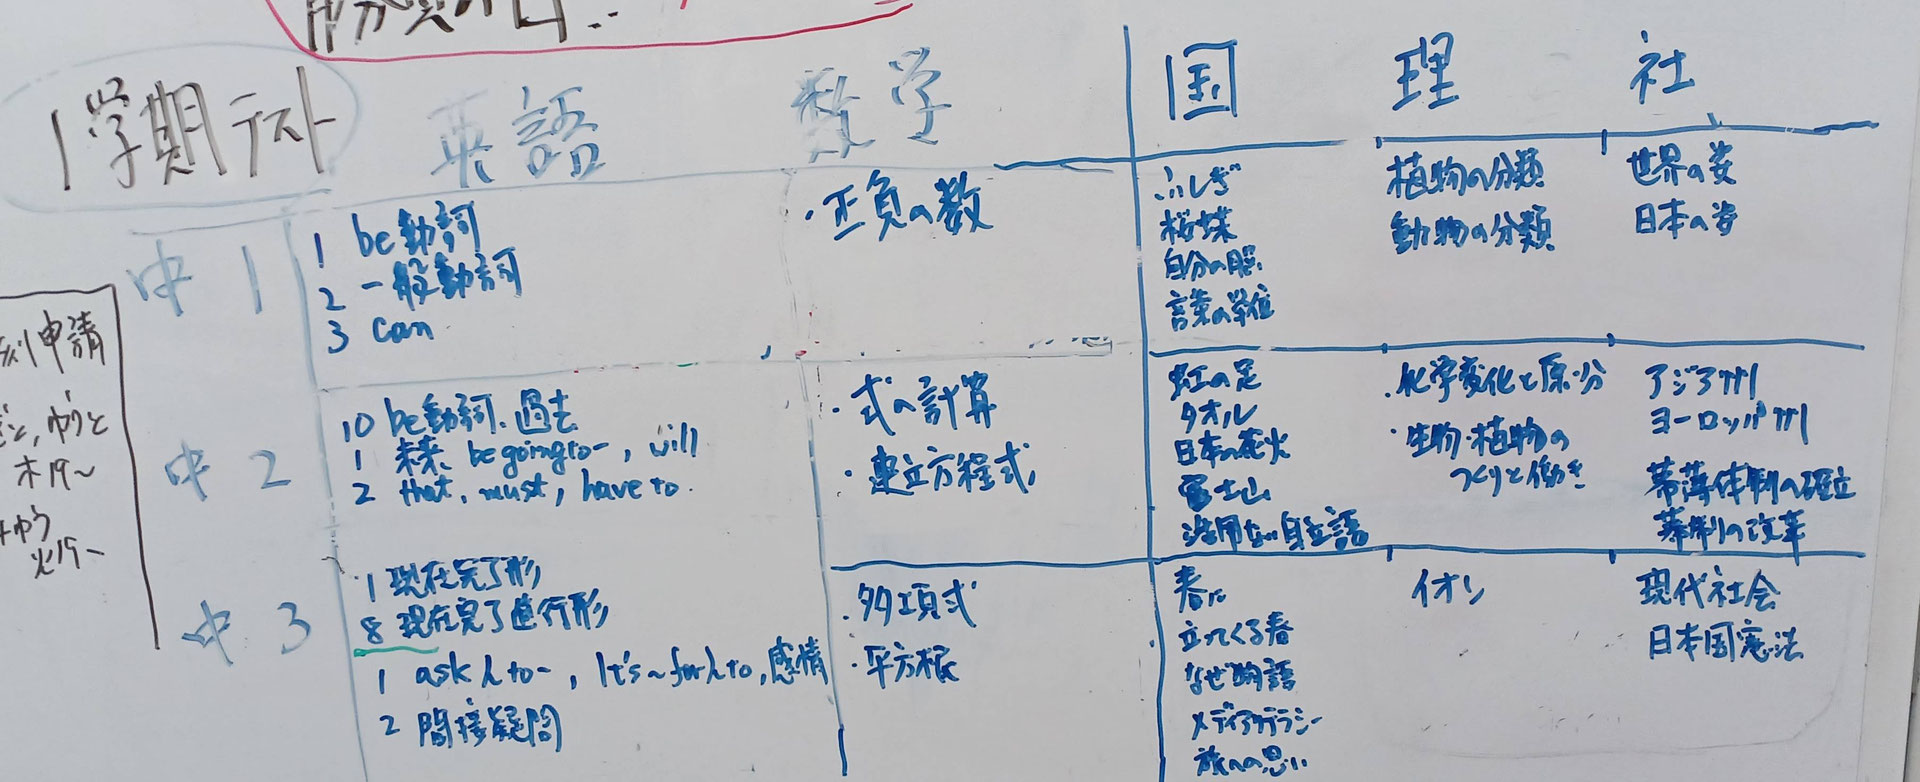 1学期テスト
英語
数学
国
理
社
中1
1 be動詞
2 一般動詞
3 can
・正負の数
ふしぎ
桜蝶
自分の脳
言葉の単位
植物の分類
動物の分類
世界の姿
日本の姿
中2
10 be動詞、過去
1 未来、be going to~, will
2 that, must, have to
・式の計算
・連立方程式
虹の足
タオル
日本の花火
富士山
活用ない自立語
・化学変化と原・分
・生物・植物の
つくりと働き
アジア州
ヨーロッパ州
幕藩体制の確立
幕府の改革
中3
・1 現在完了形
8 現在完了進行形
1 ask 人 to~, It's~for人to, 感情
2 間接疑問
・多項式
・平方根
春に
立ってくる春
なぜ物語
メディアリテラシー
旅への思い
イオン
現代社会
日本国憲法
申請
ゆうと